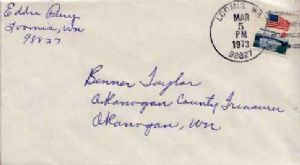 Eddie Perry
Loomis, Wn
98827
LOOMIS, WA
MAR
5
PM
1973
98827
Benner Taylor
Okanogan County Treasurer
Okanogan, Wn